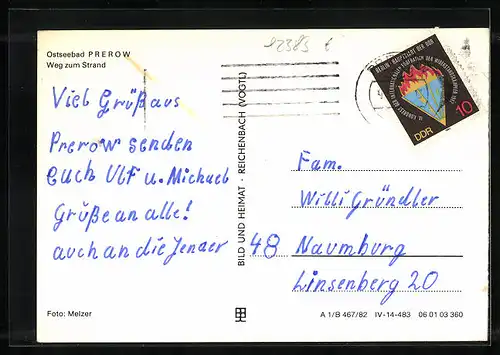 92385 6
Ostseebad PREROW
Weg zum Strand
Viel Grüß aus
Prerow senden
euch Ulf u. Michael
Grüße an alle!
auch an die Jenaer
Foto: Melzer
BILD UND HEIMAT · REICHENBACH (VOGTL)
BERLIN · HAUPTSTADT DER DDR
DDR
10
Fam.
Willi Gründler
48 Naumburg
Linsenberg 20
A 1/B 467/82 IV-14-483 06 01 03 360